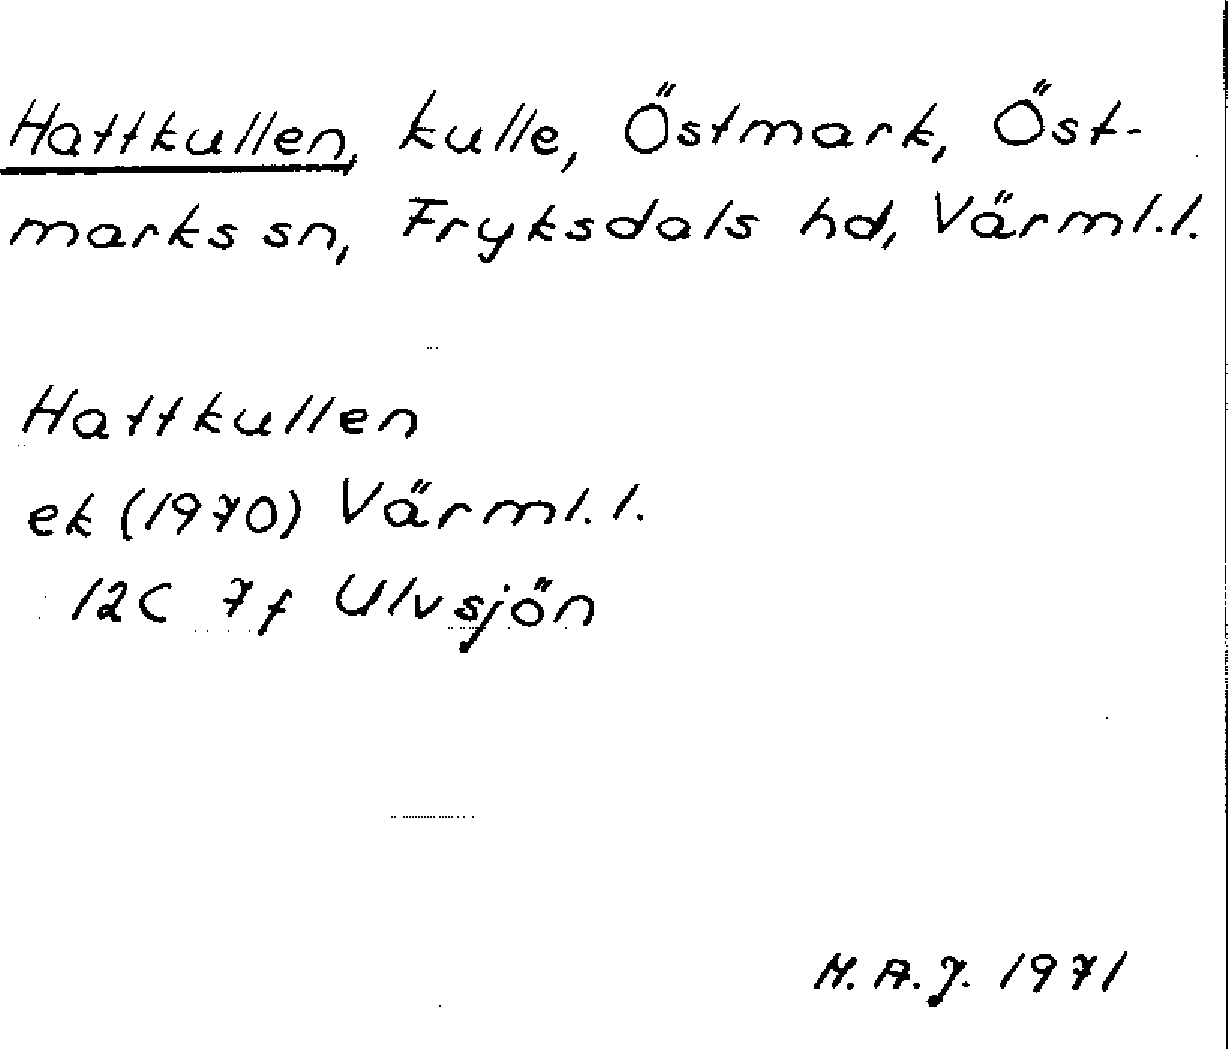 Hattkullen, kulle, Östmark, Öst-
marks sn, Fryksdals hd, Värml.l.
Hattkullen
ek (1970) Värml.l.
12C 7f Ulvsjön
M.A.J. 1971